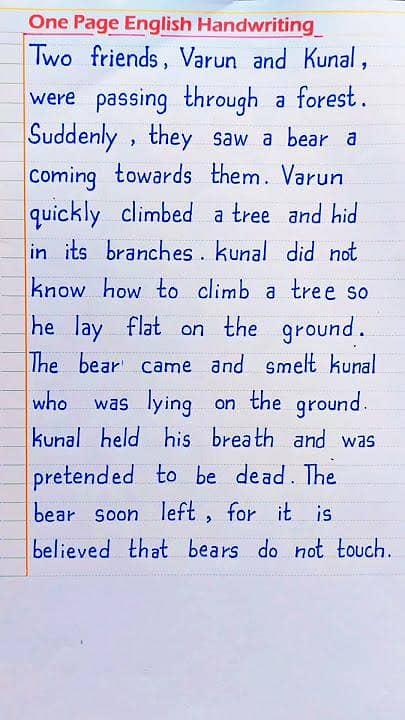 One Page English Handwriting
Two friends, Varun and Kunal,
were passing through a forest.
Suddenly, they saw a bear a
coming towards them. Varun
quickly climbed a tree and hid
in its branches. kunal did not
know how to climb a tree so
he lay flat on the ground.
The bear came and smelt kunal
who was lying on the ground.
kunal held his breath and was
pretended to be dead. The
bear soon left, for it is
believed that bears do not touch.